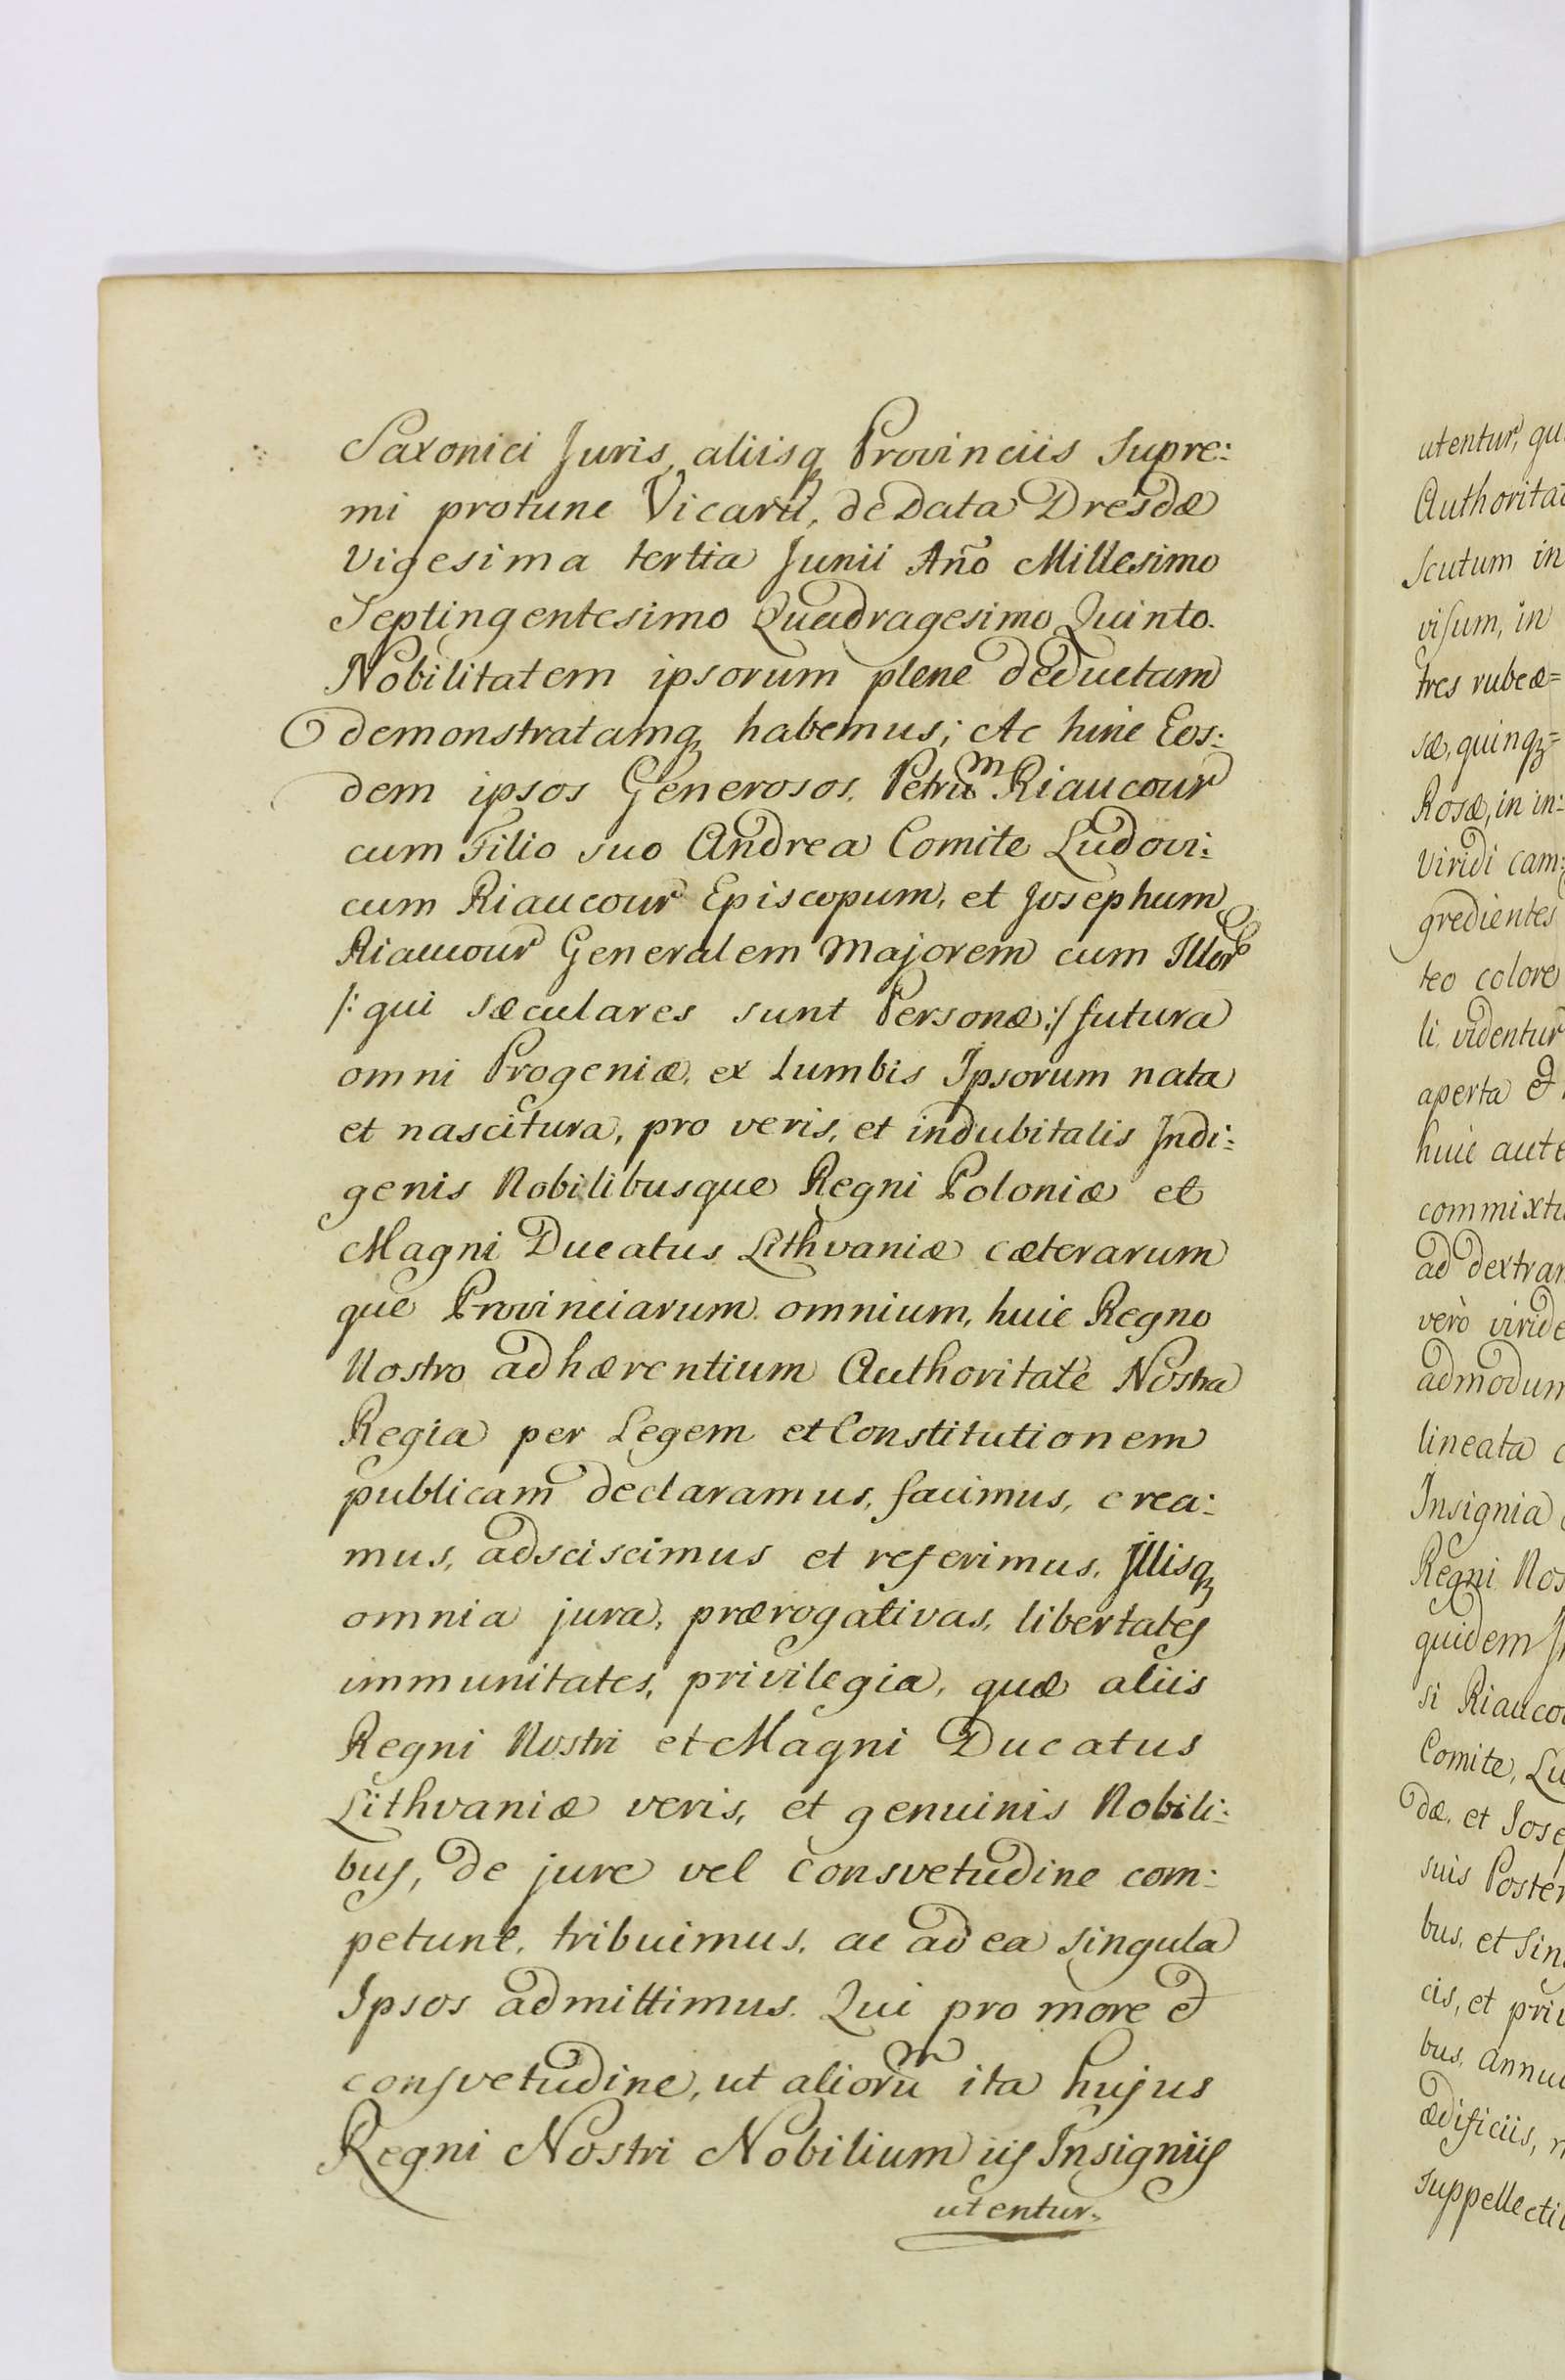 Saxonici Juris, aliisq Provinciis Supre:
mi protunc Vicarii, de Data Dresdæ
Vigesima tertia Junii Año Millesimo
Septingentesimo Quadragesimo Quinto.
Nobilitatem ipsorum plene deductam
demonstratamq habemus; Ac hinc Eos:
dem ipsos Generosos. Petrum Riaucour
cum Filio suo Andrea Comite Ludovi:
cum Riaucour Episcopum, et Josephum
Riaucour Generalem Majorem cum Illor
/: qui sæculares sunt Personæ :/ futura
omni Progeniæ, ex Lumbis Ipsorum nata
et nascitura, pro veris, et indubitalis Indi:
genis Nobilibusque Regni Poloniæ et
Magni Ducatus Lithvaniæ cæterarum
que Provinciarum omnium, huic Regno
Nostro adhærentium Authoritate Nostra
Regia per Legem et Constitutionem
publicam declaramus, facimus, crea:
mus, adsciscimus et referimus. Illisq
omnia jura, prærogativas, libertates
immunitates, privilegia, quæ aliis
Regni Nostri et Magni Ducatus
Lithvaniæ veris, et genuinis Nobili:
bus, de jure vel consvetudine com:
petunt, tribuimus, ac ad ea singula
Ipsos admittimus. Qui pro more et
consvetudine, ut aliorum ita hujus
Regni Nostri Nobilium iis Insigniis
utentur.
utentur, qu
Authorita
Scutum in
visum, in
tres rubeæ=
sæ, quinq=
Rosæ, in in:
viridi cam:
gredientes
teo colore
li videntur
aperta et
huic aute
commixtu
ad dextram
verò viride
admodum
lineata
Insignia
Regni Nos
quidem
si Riaucou
Comite, Lu
dæ, et Jose
suis Poster
bus, et sin
cis, et priv
bus, annu
ædificiis,
suppellecti